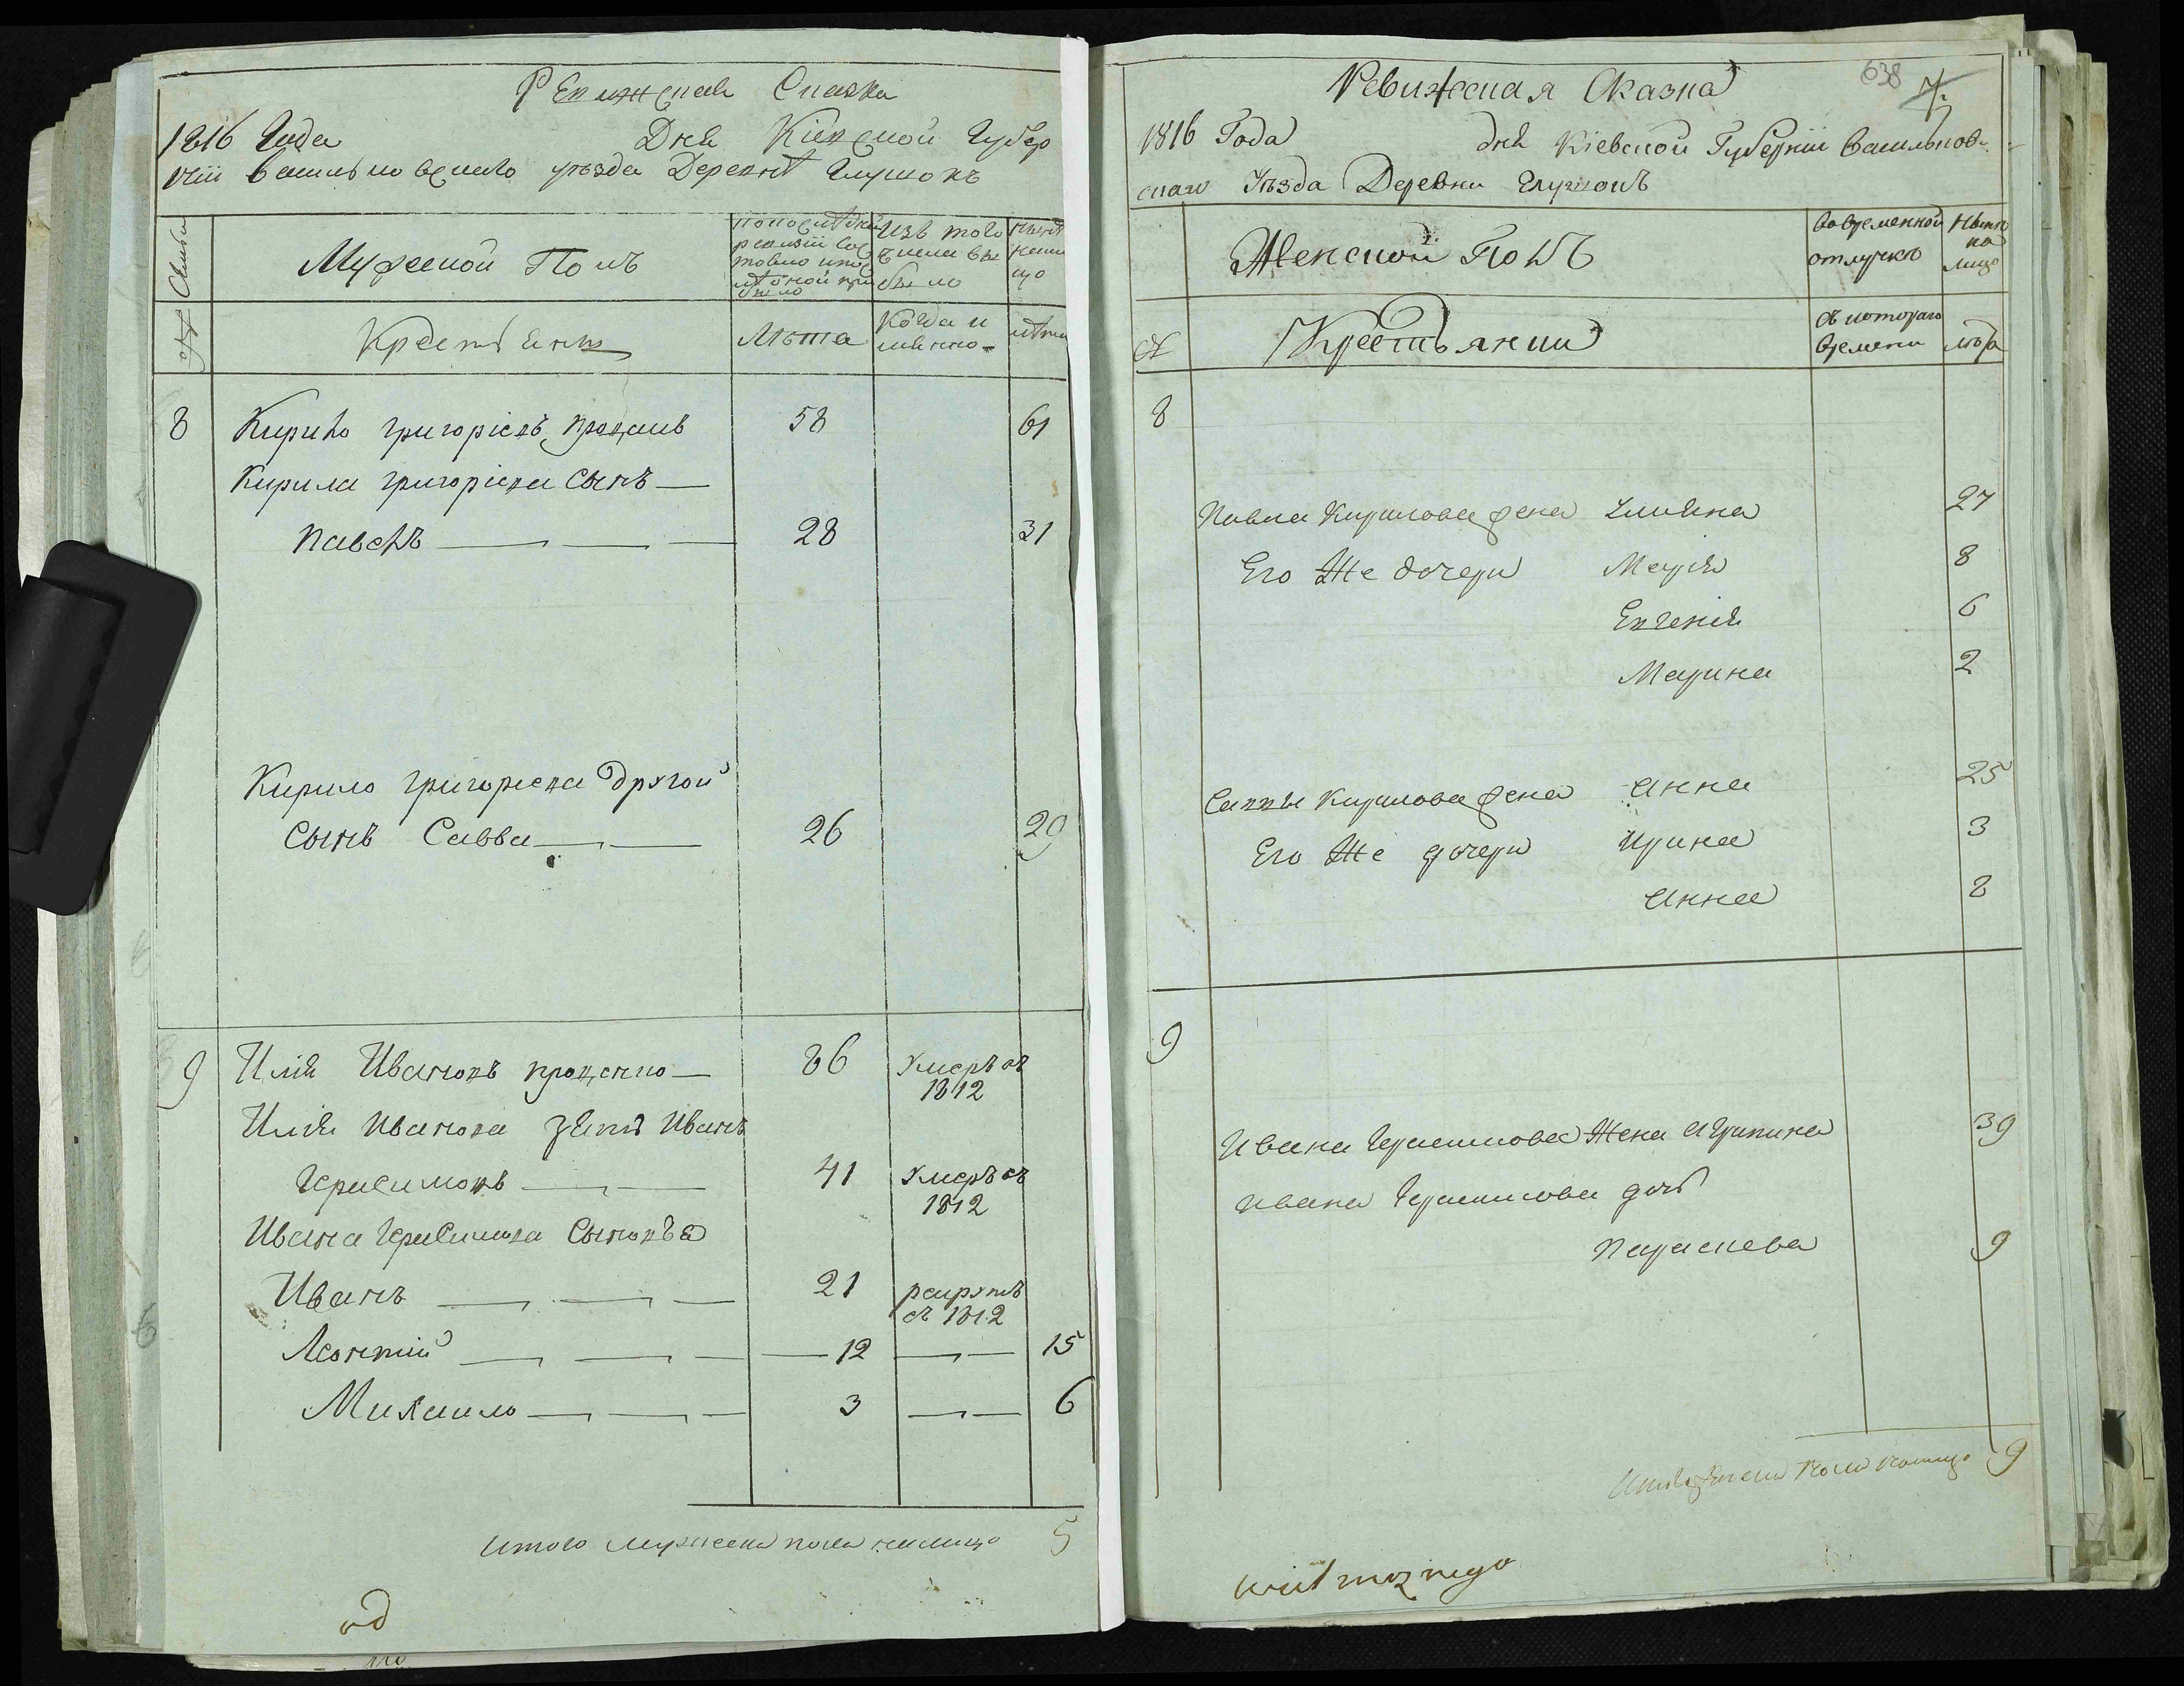 Ревижская Сказка
1816 Года Дня Кіевской Губер
ніи Васильковскаго уѣзда Деревнѣ Глушокъ
Семьи
Мужеской Полъ
По последней ревизіи состояло и после оной прибыло
Изъ того числа выбыло
Нынѣ налицо
№
Крестьянѣ
Лѣта
Когда именно
лѣта
8 Кирило Григоріевъ 58 61
Кирила Григоріева Сынъ
Павелъ 28 31
Кирило Григориева другой
Сынъ Савва 26 29
9 Илія Ивановъ 86 Умеръ въ
1812
Илія Иванова зять Иванъ
Герасимовъ 41 Умеръ въ
1812
Ивана Герасимова Сыновья
Иванъ 21 рекрутъ
въ 1812
Леонтій 12 15
Михаило 3 6
Итого Мужеска пола налицо 5
od
Ревижская Сказка
638 7.
1816 Года дня Кіевской Губерніи Васильков-
скаго Уѣзда Деревни Глушокъ
Женской Полъ
Во временной отлучке
Нынѣ на лице
№
Крестьянки
Съ котораго времени
лѣта
8
Павла Кирилова жена Улияна 27
Его Же дочери Марія 8
Евгенія 6
Марина 2
Саввы Кирилова жена Анна 25
Его Же дочери Ирина 3
Анна 2
9
Ивана Герасимова Жена Агрипина 39
Ивана Герасимова дочь
Параскева 9
Итого женска пола налицо 9